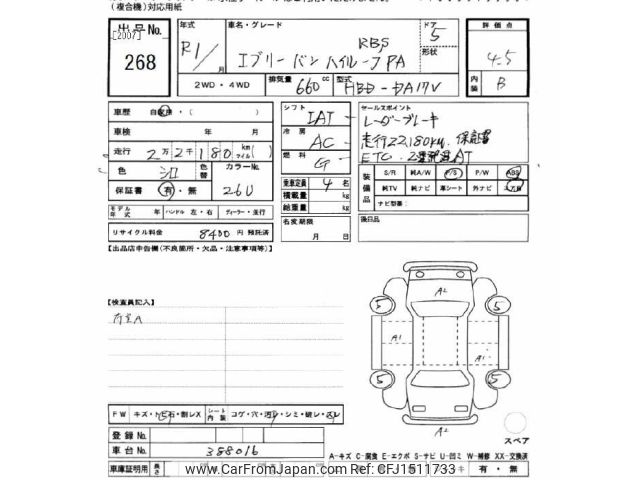 (複合機)対応用紙
出品No.
[2007]
268
年式
R1/ 月
車名・グレード
エブリーバン ハイルーフPA
RBS
形状
ドア
5
評価点
4.5
内装
B
2WD・4WD
排気量
660cc
型式
HBD-DA17V
車歴 自家用・( )
車検 年 月
走行 2万2千180 km(マイル)
色 シロ
色替
カラーNo.
26U
保証書 有・無
モデル年式 年 ハンドル 左・右 ディーラー・並行
リサイクル料金 8400円 預託済
シフト IAT
冷房 AC
燃料 G
乗車定員 4名
積載量 kg
給重量 kg
名変期限
月 日
セールスポイント
レーダーブレーキ
走行22,180km. 保証書
ETC
AT
装備品
S/R 純A/W P/S P/W ABS
純TV 純ナビ 革シート 外ナビ
ナビ型番:
後日品
【出品店申告欄(不良箇所・欠品・注意事項等)】
【検査員記入】
荷室A
A2
5 5
A1
A1
5 5
A2
スペア
FW キズ・トビ石・割レX
シート内装 コゲ・穴・汚レ・シミ・破レ・スレ
登録No.
車台No. 388016
A-キズ C-腐食 E-エクボ S-サビ U-凹ミ W-補修 XX-交換済
車庫証明用 長さ
キ 有・無
www.CarFromJapan.com Ref No: CFJ1511733